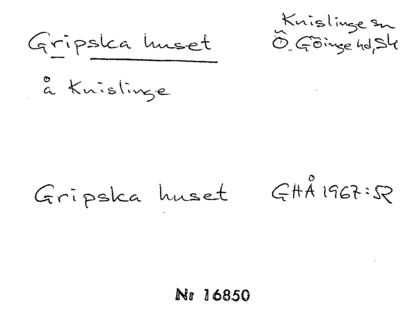 Gripska huset
Knislinge sn
Ö. Göinge hd, Sk
å Knislinge
Gripska huset GHÅ 1967:52
Nr 16850